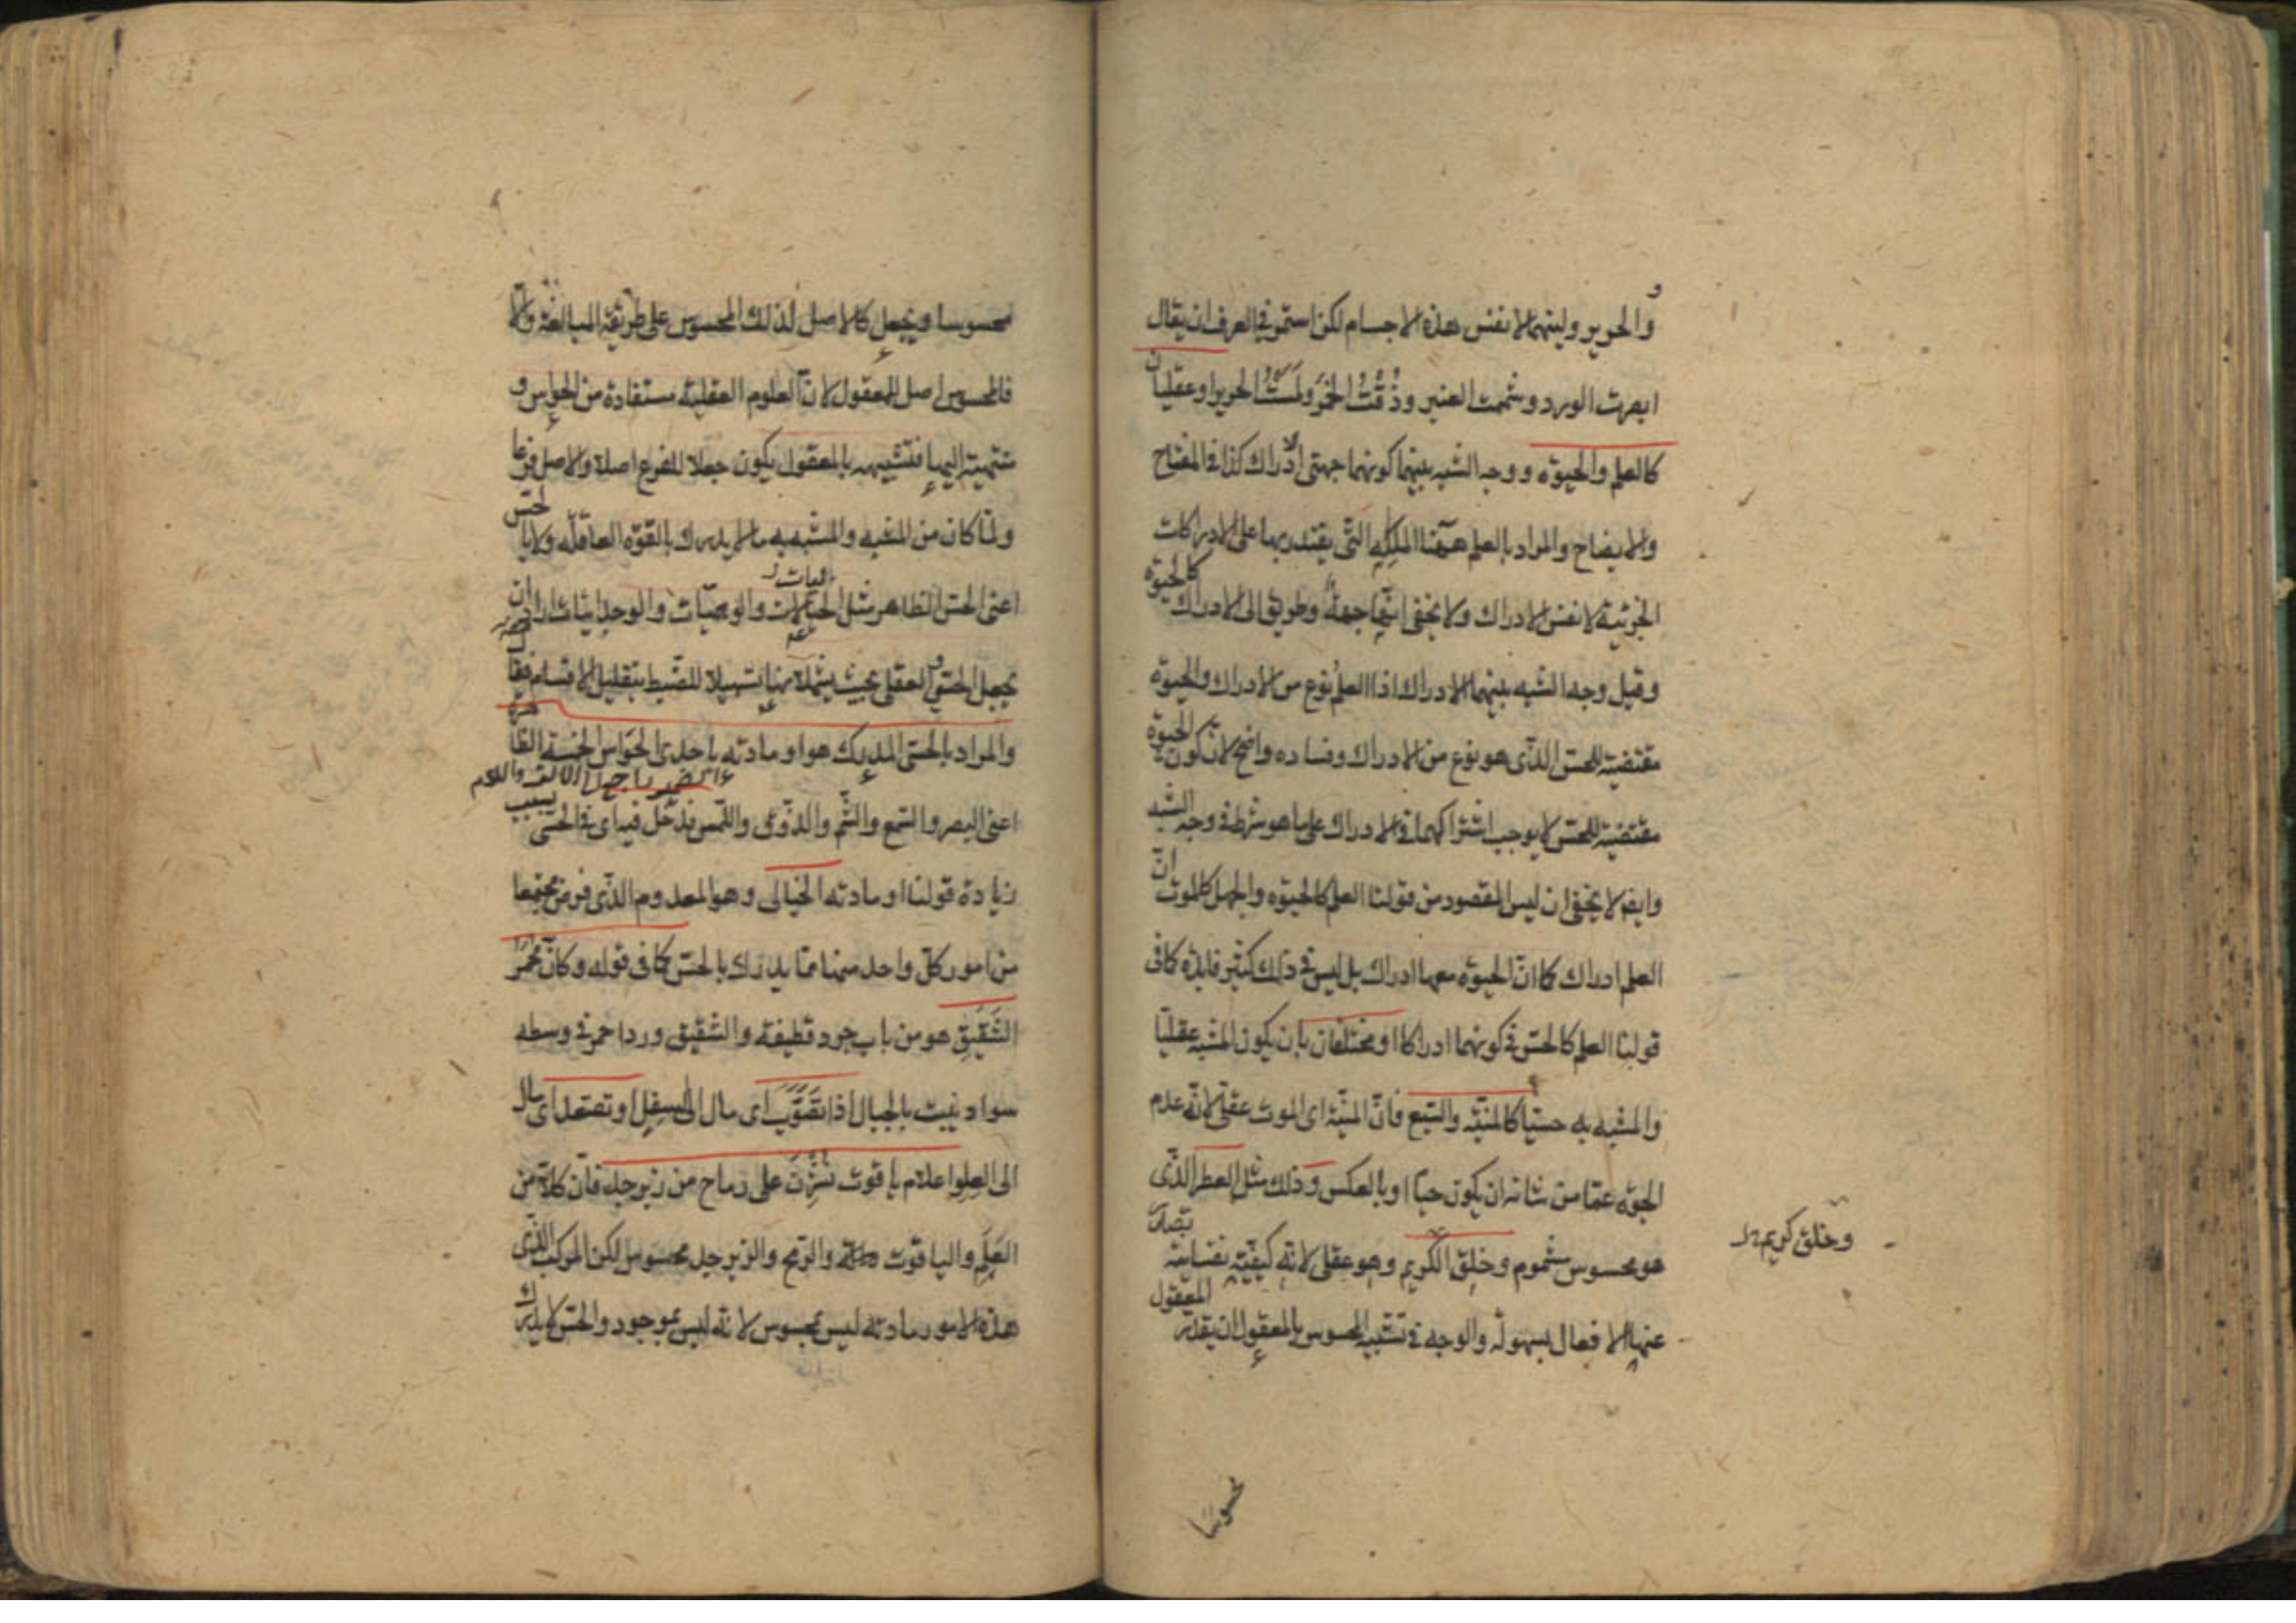 والحرير ولينهما لا نفس هذه الاجسام لكن استمر في العرف ان يقال
ابصرت الورد وشممت العنبر وذُقْتُ الخَمْرَ ولَمَسْتُ الحرير او عقليان
كالعلم والحيوة ووجه الشبه بينهما كونهما جهتى ادراك كذا فى المفتاح
والايضاح والمراد بالعلم ههنا الملكة التّى يقتدر بها على الادراكات
الجزئية لا نفس الادراك ولا يخفى انها جهة وطريق الى الادراك كالحيوة
وقيل وجه الشبه بينهما الادراك اذ العلم نوع من الادراك والحيوة
مقتضية للحسّ الذّى هو نوع من الادراك وفساده واضح لان كون الحيوة
مقتضية للحسّ لا يوجب اشتراكهما فى الادراك على ما هو شرط فى وجه الشبه
وايضا لا يخفى ان ليس المقصود من قولنا العلم كالحيوة والجهل كالموت انّ
العلم ادراك كما انّ الحيوة معها ادراك بل ليس فى ذلك كثير فايدة كما فى
قولنا العلم كالحسّ فى كونهما ادراكا او مختلفان بان يكون المشبه عقليّا
والمشبه به حسيّا كالمنيّة والسّبع فانّ المنيّة اى الموت عقلىّ لانّه عدم
الحيوة عمّا من شانه ان يكون حيّا او بالعكس وذلك مثل العطر الذّى
هو محسوس مشموم وخلق الكريم وهو عقلى لانه كيفيّة نفسانية تصدر
عنها الافعال بسهولة والوجه فى تشبيه المحسوس بالمعقول ان يقدّر المعقول
وخلق كريم
محسوسا
محسوسا ويجعل كالاصل لذلك المحسوس على طريقة المبالغة والّا
فالمحسوس اصل للمعقول لانّ العلوم العقلية مستفادة من الحواس و
منتهية اليها فتشبيهه بالمعقول يكون جعلا للفرع اصلا والاصل فرعا
ولمّا كان من المشبه والمشبه به ما لا يدرك بالقوّة العاقلة ولا بالحسّ
اعنى الحسّ الظاهر مثل الخياليات والوهميّات والوجدانيات اراد ان
يجعل الحسّى والعقلى بحيث يشملانها تسهيلا للضّبط بتقليل الاقسام فقال
والمراد بالحسّى المدرك هو او مادته باحدى الحوّاس الخمسة الظاهرة
الضمير راجع الى الالف واللام
اعنى البصر والسّمع والشّم والذّوق واللّمس فدخل فيه اى فى الحسّى بسبب
زيادة قولنا او مادته الخيالى وهو المعدوم الذّى فرض مجتمعا
من امور كلّ واحد منها ممّا يدرك بالحسّ كما فى قوله وكانّ مُحْمَرّ
الشَّقيق هو من باب جرد قطيفة والشقيق ورد احمر فى وسطه
سواد ينبت بالجبال اذا تَصَوَّبَ اى مال الى السفل او تصعّد اى مال
الى العلو اعلام ياقوت نُشِرْنَ على رماح من زبرجد فانّ كلّا من
العَلَم والياقوت والرّمح والزبرجد محسوس لكن المركب الذّى
هذه الامور مادته ليس بمحسوس لانه ليس بموجود والحسّ لا يدرك